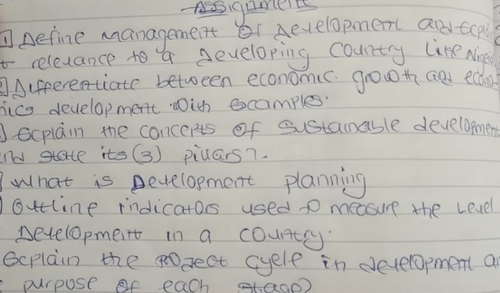 Assignment
1) Define management of development and Explai
t relevance to a developing country like Niger
2) Differentiate between economic growth and econo
mic development with examples.
) Explain the concepts of sustainable development
and state its (3) pillars?.
) What is Development planning
) Outline indicators used to measure the level
Development in a country.
Explain the project cycle in development an
purpose of each stage)